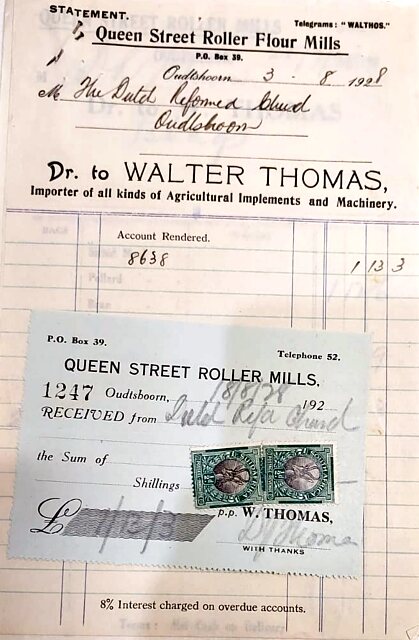 STATEMENT.
Telegrams: "WALTHOS."
Queen Street Roller Flour Mills
P.O. Box 39.
Oudtshoorn 3 - 8 1928
M The Dutch Reformed Church
Oudtshoorn
Dr. to WALTER THOMAS,
Importer of all kinds of Agricultural Implements and Machinery.
Account Rendered.
8638 1 13 3
P.O. Box 39. Telephone 52.
QUEEN STREET ROLLER MILLS,
1247 Oudtshoorn, 18/8/28 192
RECEIVED from Dutch Refd Church
the Sum of
Shillings
£ 1/13/3
p.p. W. THOMAS,
WITH THANKS
8% Interest charged on overdue accounts.